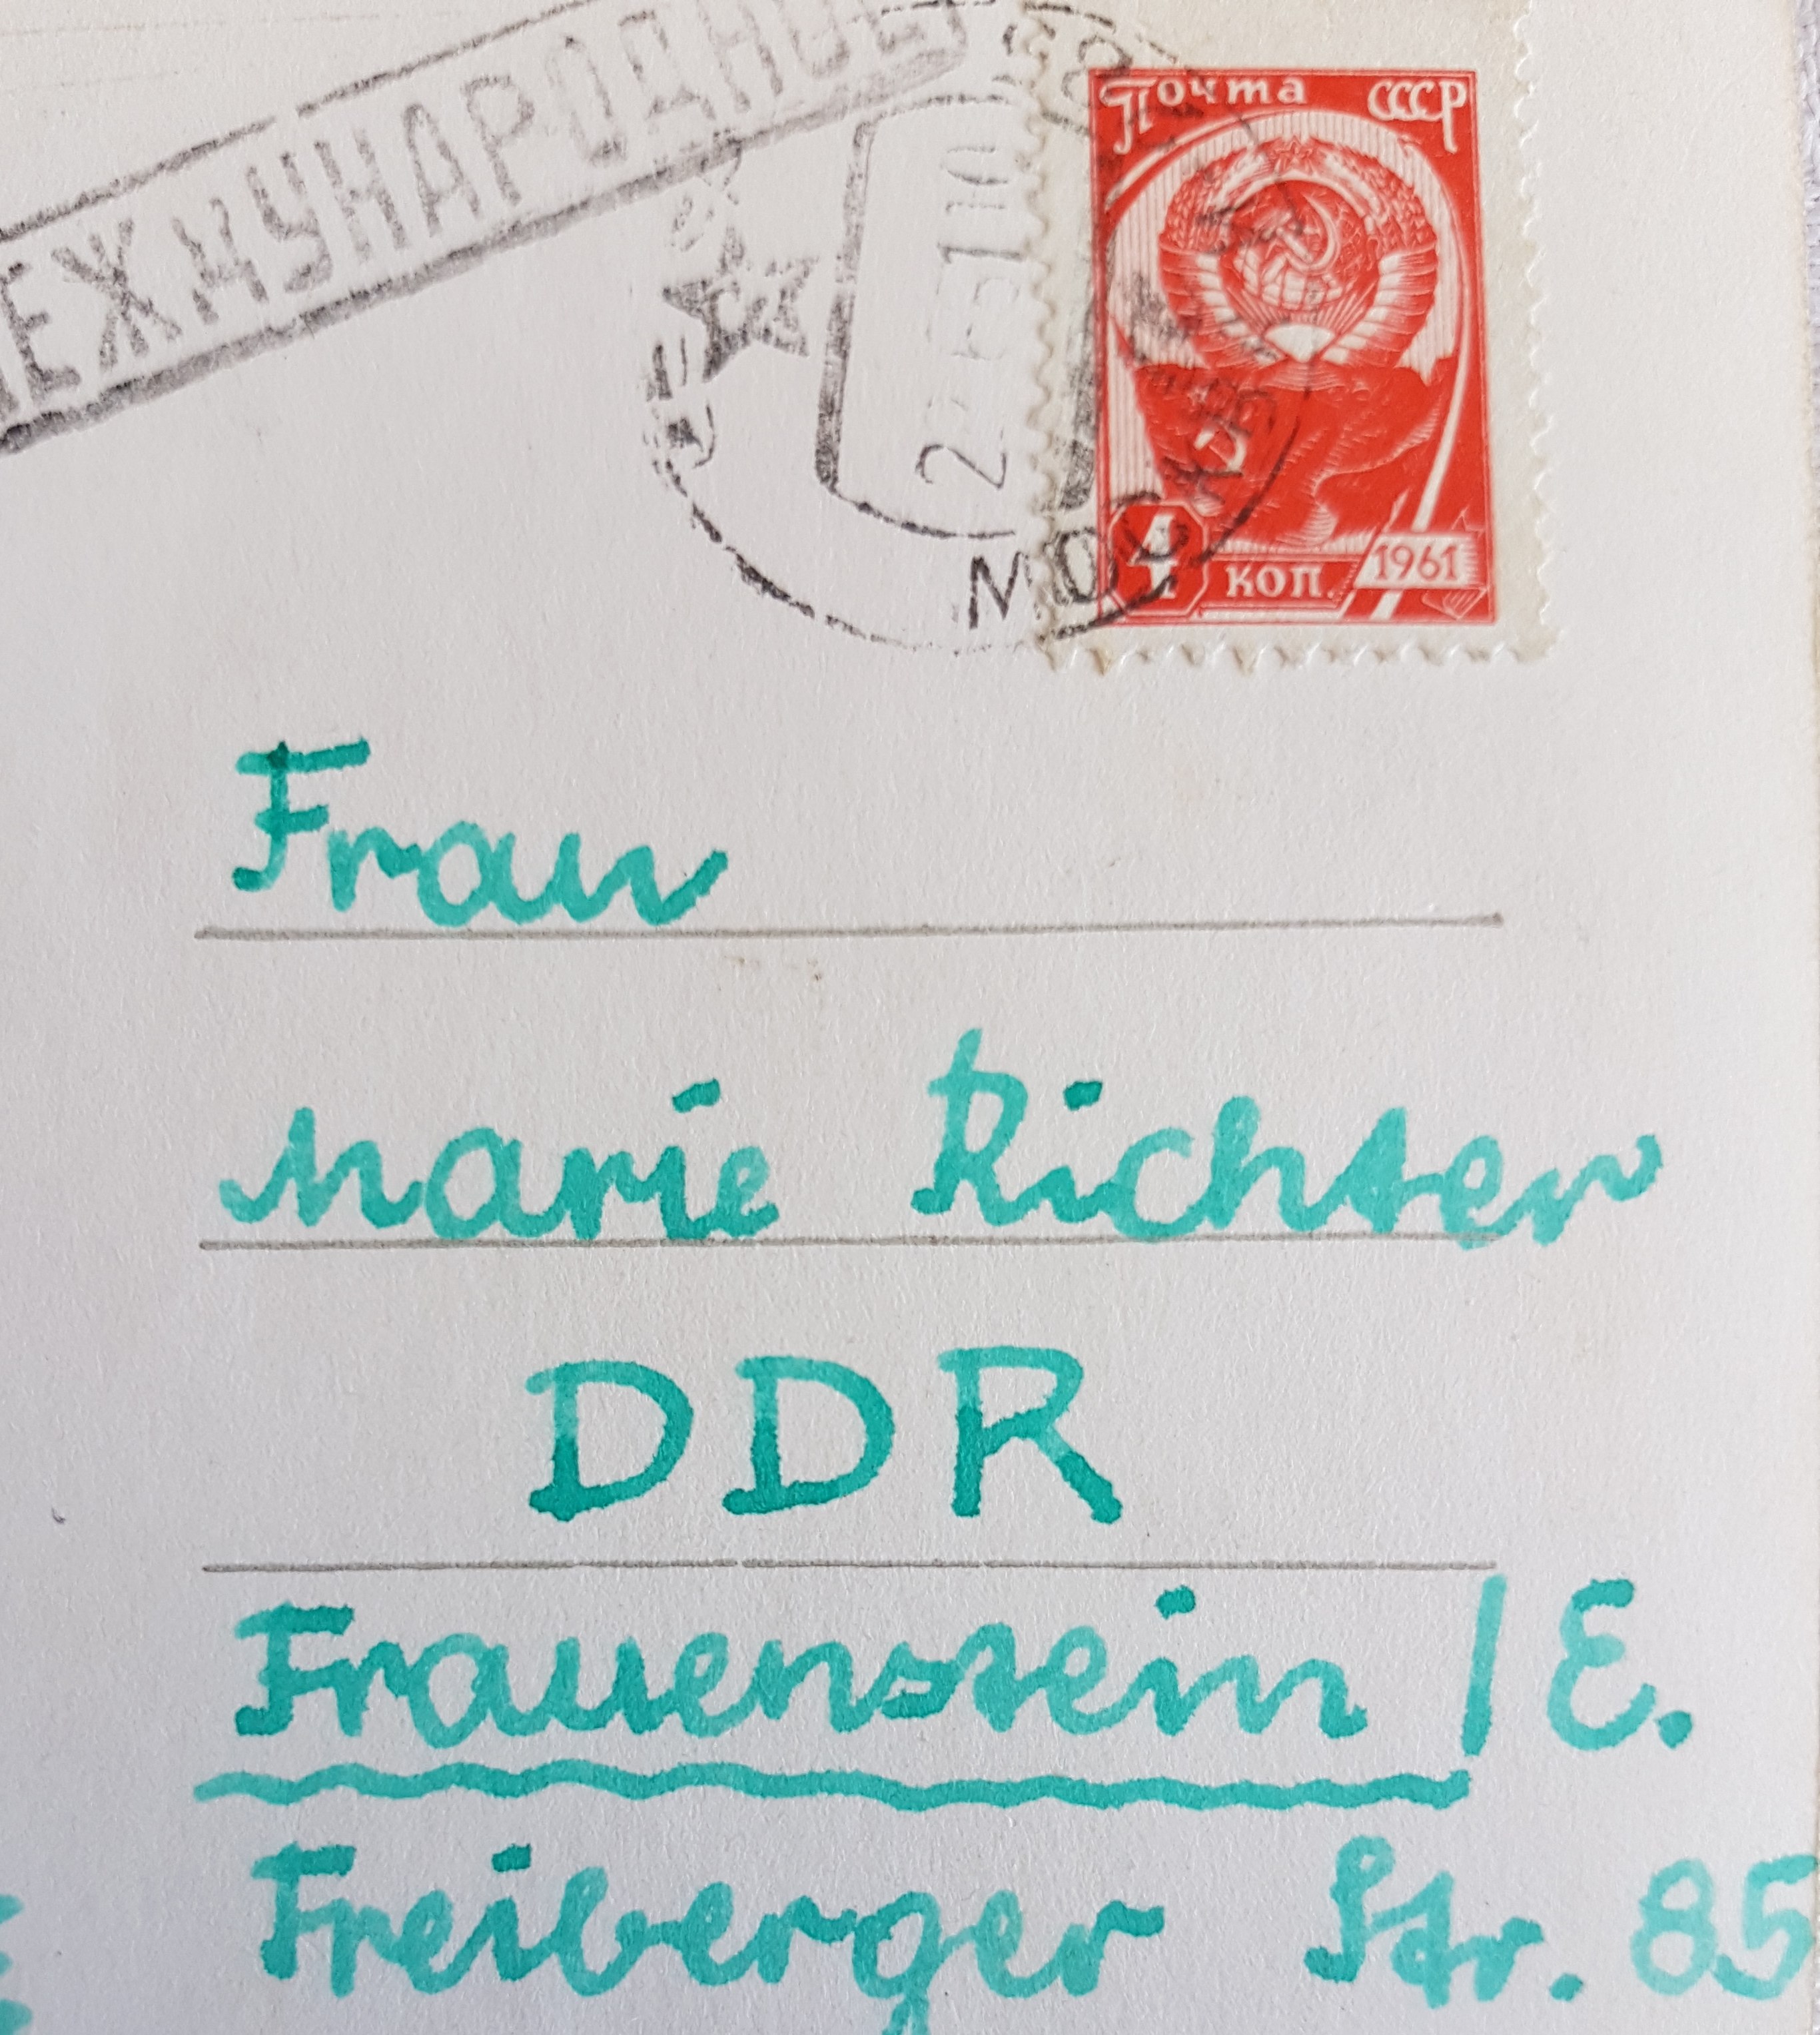 МЕЖДУНАРОДНОЕ
Почта СССР
МОСКВА
4 коп. 1961
Frau
Marie Richter
DDR
Frauenstein / E.
Freiberger Str. 85